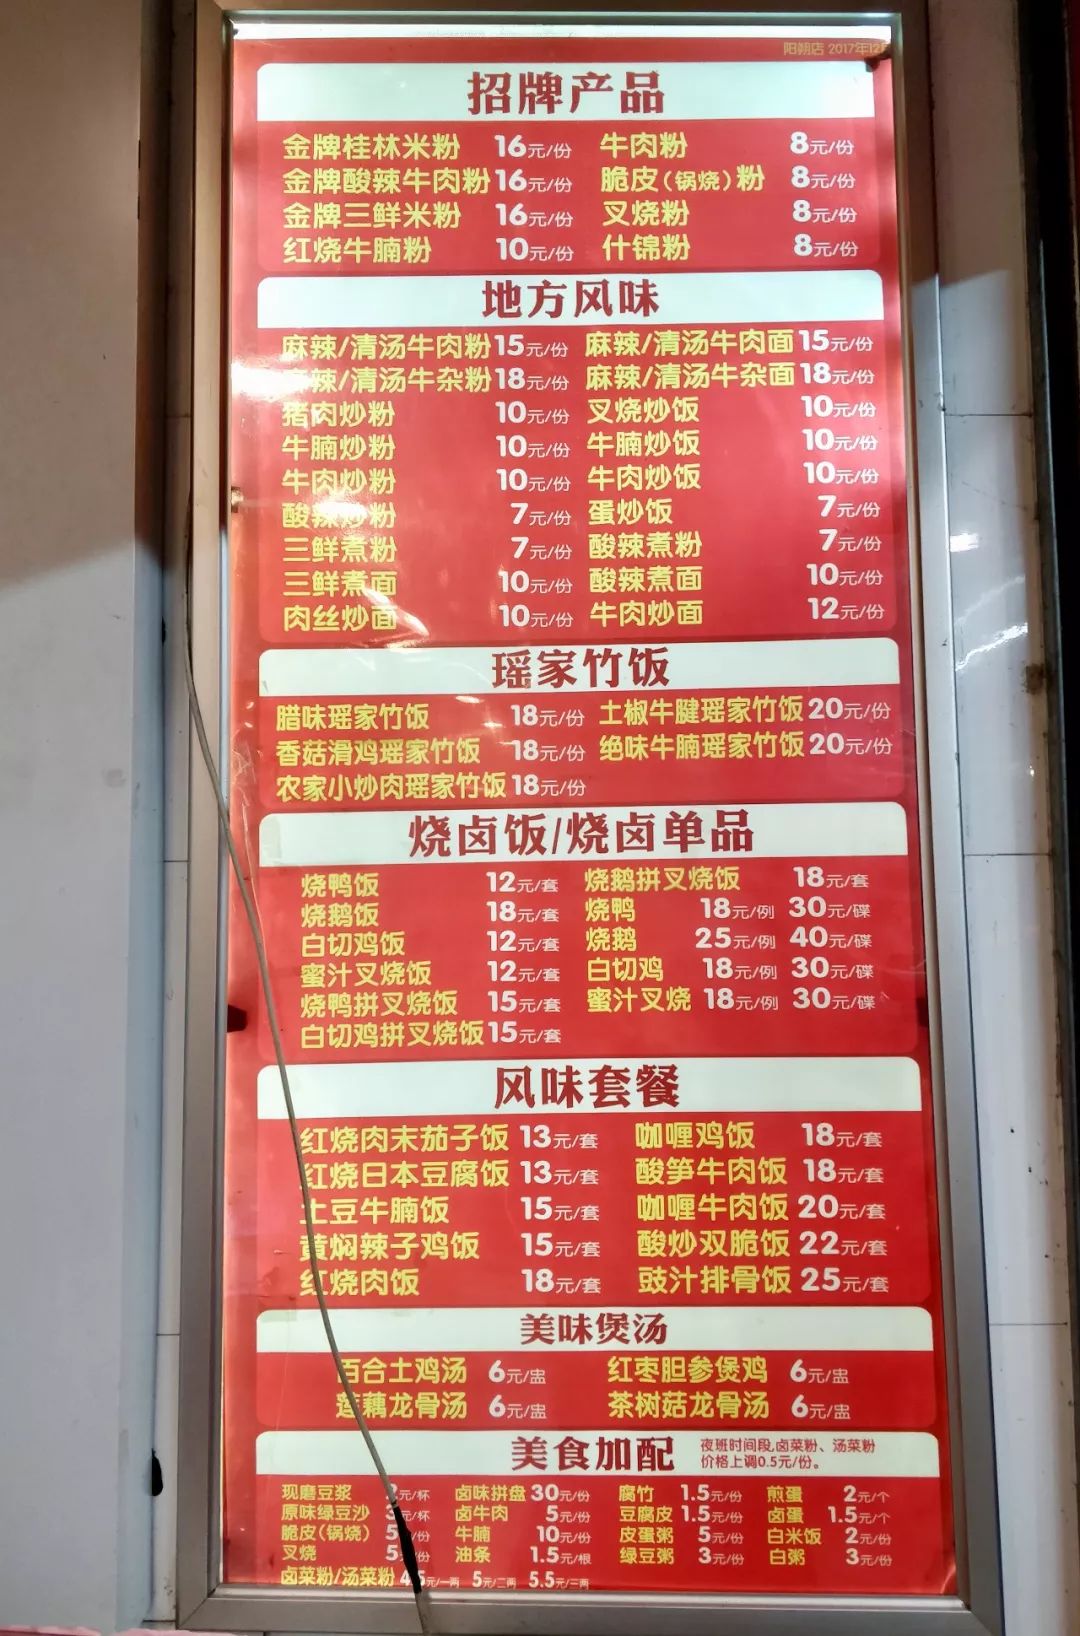 阳朔店 2017年12月
招牌产品
金牌桂林米粉 16元/份 牛肉粉 8元/份
金牌酸辣牛肉粉 16元/份 脆皮(锅烧)粉 8元/份
金牌三鲜米粉 16元/份 叉烧粉 8元/份
红烧牛腩粉 10元/份 什锦粉 8元/份
地方风味
麻辣/清汤牛肉粉 15元/份 麻辣/清汤牛肉面 15元/份
辣/清汤牛杂粉 18元/份 麻辣/清汤牛杂面 18元/份
猪肉炒粉 10元/份 叉烧炒饭 10元/份
牛腩炒粉 10元/份 牛腩炒饭 10元/份
牛肉炒粉 10元/份 牛肉炒饭 10元/份
酸辣炒粉 7元/份 蛋炒饭 7元/份
三鲜煮粉 7元/份 酸辣煮粉 7元/份
三鲜煮面 10元/份 酸辣煮面 10元/份
肉丝炒面 10元/份 牛肉炒面 12元/份
瑶家竹饭
腊味瑶家竹饭 18元/份 土椒牛腱瑶家竹饭 20元/份
香菇滑鸡瑶家竹饭 18元/份 绝味牛腩瑶家竹饭 20元/份
农家小炒肉瑶家竹饭 18元/份
烧卤饭/烧卤单品
烧鸭饭 12元/套 烧鹅拼叉烧饭 18元/套
烧鹅饭 18元/套 烧鸭 18元/例 30元/碟
白切鸡饭 12元/套 烧鹅 25元/例 40元/碟
蜜汁叉烧饭 12元/套 白切鸡 18元/例 30元/碟
烧鸭拼叉烧饭 15元/套 蜜汁叉烧 18元/例 30元/碟
白切鸡拼叉烧饭 15元/套
风味套餐
红烧肉末茄子饭 13元/套 咖喱鸡饭 18元/套
红烧日本豆腐饭 13元/套 酸笋牛肉饭 18元/套
土豆牛腩饭 15元/套 咖喱牛肉饭 20元/套
黄焖辣子鸡饭 15元/套 酸炒双脆饭 22元/套
红烧肉饭 18元/套 豉汁排骨饭 25元/套
美味煲汤
百合土鸡汤 6元/盅 红枣胆参煲鸡 6元/盅
莲藕龙骨汤 6元/盅 茶树菇龙骨汤 6元/盅
美食加配 夜班时间段,卤菜粉、汤菜粉
价格上调0.5元/份。
现磨豆浆 元/杯 卤味拼盘 30元/份 腐竹 1.5元/份 煎蛋 2元/个
原味绿豆沙 3元/杯 卤牛肉 5元/份 豆腐皮 1.5元/份 卤蛋 1.5元/个
脆皮(锅烧) 5 /份 牛腩 10元/份 皮蛋粥 5元/份 白米饭 2元/份
叉烧 5 /份 油条 1.5元/根 绿豆粥 3元/份 白粥 3元/份
卤菜粉/汤菜粉 4.5元/一两 5元/二两 5.5元/三两